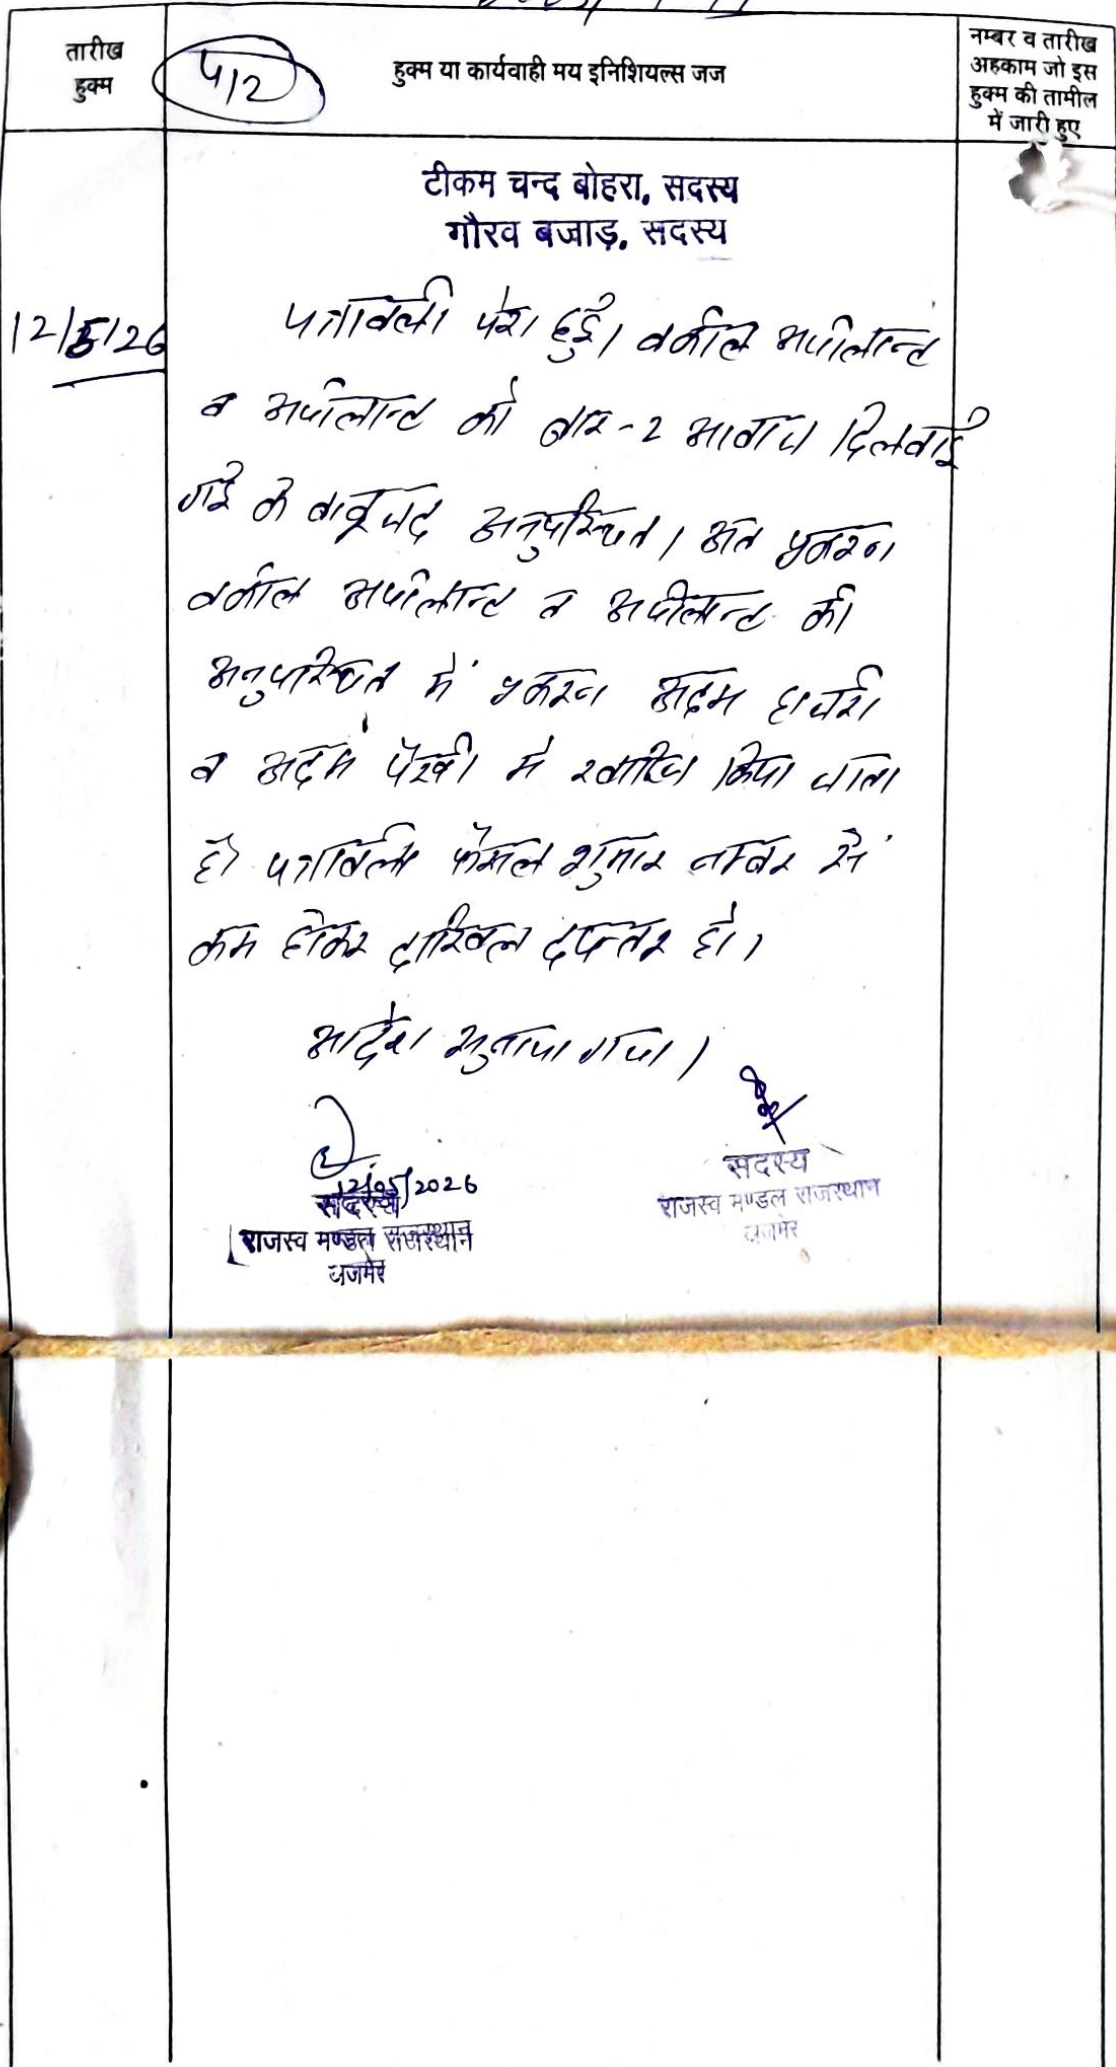 तारीख
हुक्म
५/2
हुक्म या कार्यवाही मय इनिशियल्स जज
नम्बर व तारीख
अहकाम जो इस
हुक्म की तामील
में जारी हुए
टीकम चन्द बोहरा, सदस्य
गौरव बजाड़, सदस्य
12/5/26
पत्रावली पेश हुई। वकील अपीलान्ट
व अपीलान्ट को बार-2 आवाज दिलवाई
गई के बावूजद अनुपस्थित। अत प्रकरण
वकील अपीलान्ट व अपीलान्ट की
अनुपस्थित में प्रकरण अदम हाजरी
व अदम पैरवी मे खारिज किया जाता
है। पत्रावली फैसल शुमार नम्बर से
कम होकर दाखिल दफ्तर हो।
आदेश सुनाया गया।
12/05/2026
सदस्य
राजस्व मण्डल राजस्थान
अजमेर
सदस्य
राजस्व मण्डल राजस्थान
अजमेर